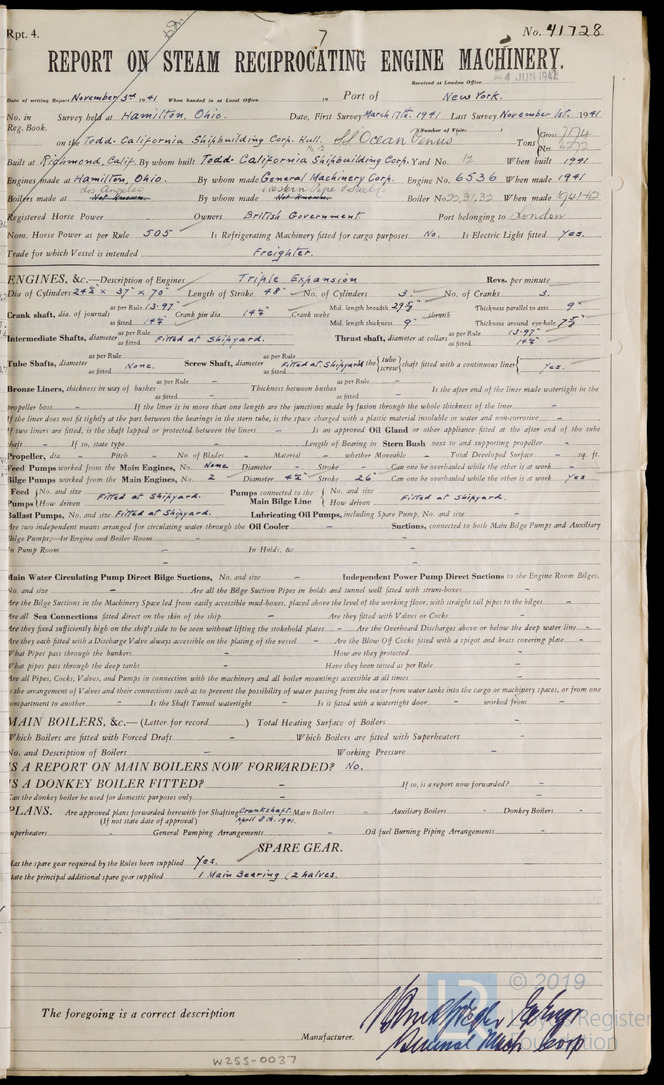 Rpt. 4.
7
No. 41728
REPORT ON STEAM RECIPROCATING ENGINE MACHINERY.
Received at London Office
4 JUN 1942
Date of writing Report November 3rd 1941 When handed in at Local Office 19 Port of New York.
No. in Survey held at Hamilton, Ohio. Date, First Survey March 17th. 1941 Last Survey November 1st. 1941
Reg. Book. (Number of Visits
on the Todd-California Shipbuilding Corp. Hull. SS Ocean Venus Tons Gross 7174
Net 4272
Built at Richmond, Calif. By whom built Todd-California Shipbuilding Corp. Yard No. When built 1941
Engines made at Hamilton, Ohio. By whom made General Machinery Corp. Engine No. 6536 When made 1941
Los Angeles Western Pipe & Steel Co
Boilers made at Not Known. By whom made Not Known. Boiler No. When made 1941-42
Registered Horse Power Owners British Government. Port belonging to London
Nom. Horse Power as per Rule 505 Is Refrigerating Machinery fitted for cargo purposes No. Is Electric Light fitted Yes.
Trade for which Vessel is intended Freighter.
ENGINES, &c.—Description of Engines Triple Expansion Revs. per minute
Dia of Cylinders 24½" x 37" x 70" Length of Stroke 48" No. of Cylinders 3. No. of Cranks 3.
Crank shaft, dia. of journals as per Rule 13.97" Crank pin dia. 14¼" Crank webs Mid. length breadth 29½" Thickness parallel to axis 9"
as fitted 14¼" Mid. length thickness 9" shrunk Thickness around eye-hole
Intermediate Shafts, diameter as per Rule as fitted Fitted at Shipyard. Thrust shaft, diameter at collars as per Rule 13.97" as fitted 14¼"
Tube Shafts, diameter as per Rule as fitted None. Screw Shaft, diameter as per Rule as fitted Fitted at Shipyard Is the {tube screw} shaft fitted with a continuous liner { Yes.
Bronze Liners, thickness in way of bushes as per Rule - as fitted - Thickness between bushes as per Rule - as fitted - Is the after end of the liner made watertight in the
propeller boss - If the liner is in more than one length are the junctions made by fusion through the whole length of the liner -
If the liner does not fit tightly at the part between the bearings in the stern tube, is the space charged with a plastic material insoluble in water and non-corrosive -
If two liners are fitted, is the shaft lapped or protected between the liners - Is an approved Oil Gland or other appliance fitted at the after end of the tube
shaft - If so, state type - Length of Bearing in Stern Bush next to and supporting propeller -
Propeller, dia. - Pitch - No. of Blades - Material - whether Moveable - Total Developed Surface - sq. ft.
Feed Pumps worked from the Main Engines, No. None Diameter - Stroke - Can one be overhauled while the other is at work -
Bilge Pumps worked from the Main Engines, No. 2 Diameter 4½" Stroke 26" Can one be overhauled while the other is at work Yes
Feed Pumps { No. and size How driven Fitted at Shipyard. Pumps connected to the Main Bilge Line { No. and size How driven Fitted at Shipyard.
Ballast Pumps, No. and size Fitted at Shipyard. Lubricating Oil Pumps, including Spare Pump, No. and size -
Are two independent means arranged for circulating water through the Oil Cooler - Suctions, connected to both Main Bilge Pumps and Auxiliary
Bilge Pumps;—In Engine and Boiler Room -
In Pump Room - In Holds, &c -
Main Water Circulating Pump Direct Bilge Suctions, No. and size - Independent Power Pump Direct Suctions to the Engine Room Bilges,
No. and size - Are all the Bilge Suction Pipes in holds and tunnel well fitted with strum-boxes -
Are the Bilge Suctions in the Machinery Space led from easily accessible mud-boxes, placed above the level of the working floor, with straight tail pipes to the bilges -
Are all Sea Connections fitted direct on the skin of the ship - Are they fitted with Valves or Cocks -
Are they fixed sufficiently high on the ship's side to be seen without lifting the stokehold plates - Are the Overboard Discharges above or below the deep water line -
Are they each fitted with a Discharge Valve always accessible on the plating of the vessel - Are the Blow Off Cocks fitted with a spigot and brass covering plate -
What Pipes pass through the bunkers - How are they protected -
What pipes pass through the deep tanks - Have they been tested as per Rule -
Are all Pipes, Cocks, Valves, and Pumps in connection with the machinery and all boiler mountings accessible at all times -
Is the arrangement of Valves and their connections such as to prevent the possibility of water passing from the sea or from water tanks into the cargo or machinery spaces, or from one
compartment to another - Is the Shaft Tunnel watertight - Is it fitted with a watertight door - worked from -
MAIN BOILERS, &c.—(Letter for record ) Total Heating Surface of Boilers -
Which Boilers are fitted with Forced Draft - Which Boilers are fitted with Superheaters -
No. and Description of Boilers - Working Pressure -
IS A REPORT ON MAIN BOILERS NOW FORWARDED? No.
IS A DONKEY BOILER FITTED? - If so, is a report now forwarded? -
Can the donkey boiler be used for domestic purposes only -
PLANS. Are approved plans forwarded herewith for Shafting Crankshaft. Main Boilers - Auxiliary Boilers - Donkey Boilers -
(If not state date of approval) April 8th. 1941.
Superheaters - General Pumping Arrangements - Oil fuel Burning Piping Arrangements -
SPARE GEAR.
Has the spare gear required by the Rules been supplied Yes.
State the principal additional spare gear supplied 1 Main Bearing (2 halves.
© 2019
Lloyd's Register
Foundation
The foregoing is a correct description
General Mach. Corp
Manufacturer.
W255-0037